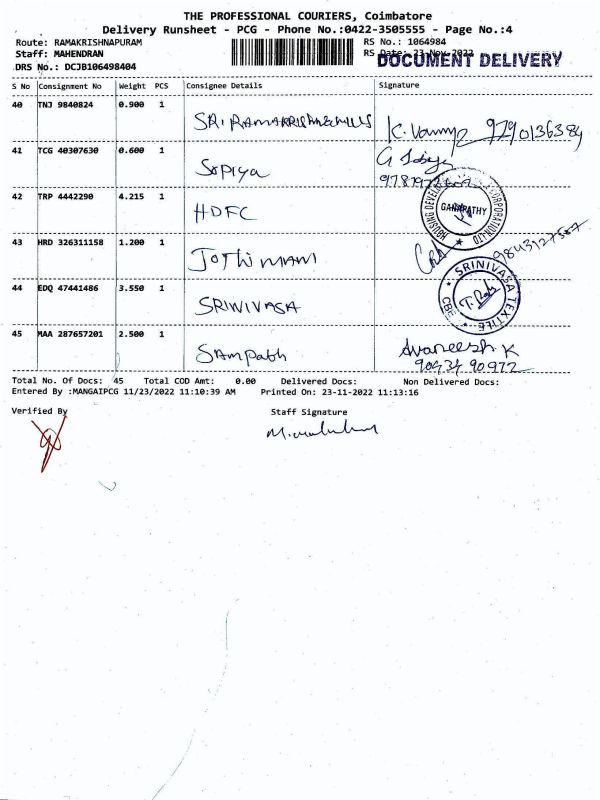 THE PROFESSIONAL COURIERS, Coimbatore
Delivery Runsheet - PCG - Phone No.:0422-3505555 - Page No.:4
Route: RAMAKRISHNAPURAM
RS No.: 1064984
Staff: MAHENDRAN
RS Date: 23-Nov-2022
DOCUMENT DELIVERY
DRS No.: DCJB106498404
S No Consignment No Weight PCS Consignee Details Signature
40 TNJ 9840824 0.900 1 SRI RAMAKRISHNA MILLS 9790136384
41 TCG 40307630 0.600 1 Sopiya
42 TRP 4442290 4.215 1 HDFC
GANAPATHY
43 HRD 326311158 1.200 1 JOTHIMANI
44 EDQ 47441486 3.550 1 SRINIVASA
SRINIVASA TEXTILE CBE
45 MAA 287657201 2.500 1 Sampath Avaneesh K
90434 90972
Total No. Of Docs: 45 Total COD Amt: 0.00 Delivered Docs: Non Delivered Docs:
Entered By :MANGAIPCG 11/23/2022 11:10:39 AM Printed On: 23-11-2022 11:13:16
Verified By Staff Signature